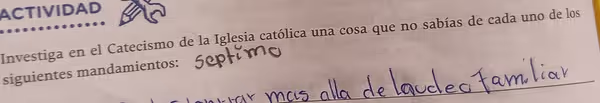 ACTIVIDAD
Investiga en el Catecismo de la Iglesia católica una cosa que no sabías de cada uno de los
siguientes mandamientos: septimo
mas alla de familiar